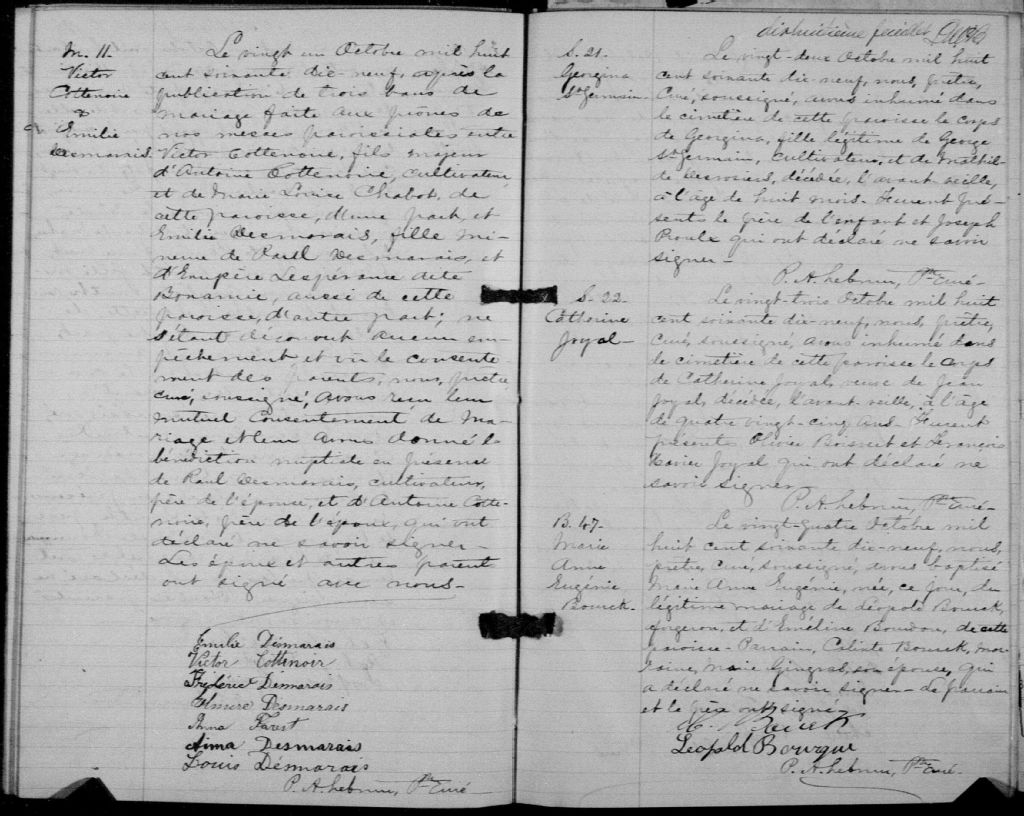 M. 11.
Victor
Cottenoire
&
Emilie
Desmarais.
Le vingt un Octobre mil huit
cent soixante dix-neuf, après la
publication de trois bans de
mariage faite aux prônes de
nos messes paroissiales entre
Victor Cottenoire, fils majeur
d'Antoine Cottenoire, cultivateur,
et de Marie Louise Chabot, de
cette paroisse, d'une part, et
Emilie Desmarais, fille mi-
neure de Paul Desmarais, et
d'Exupère Lespérance dete
Bonamie, aussi de cette
paroisse, d'autre part; ne
s'étant découvert aucun em-
pêchement et vu le consente-
ment des parents, nous, prêtre
curé, soussigné, avons reçu leur
mutuel Consentement de Ma-
riage et leur avons donné la
bénédiction nuptiale en présence
de Paul Desmarais, cultivateur,
père de l'épouse, et d'Antoine Cotte-
noire, père de l'époux, qui ont
déclaré ne savoir signer-
Les époux et autres parent
ont signé avec nous-
Emilie Desmarais
Victor Cottenoir
Frédéric Desmarais
Desmarais
Anna
Aima Desmarais
Louis Désmarais
P. A. Lebrun, Ptre Curé-
dixhuitième feuillet
S. 21.
Georgina
St Germain-
Le vingt-deux Octobre mil huit
cent soixante dix-neuf, nous, prêtre,
Curé, soussigné, avons inhumé dans
le cimetière de cette paroisse le corps
de Georgina, fille légitime de George
St Germain, cultivateur, et de Mathil-
de Desrosiers, décédée, l'avant-veille,
à l'âge de huit mois. Furent pré-
sents le père de l'enfant et Joseph
Proulx qui ont déclaré ne savoir
signer-
P. A. Lebrun, Ptre Curé-
S. 22.
Catherine
Joyal-
Le vingt-trois Octobre mil huit
cent soixante dix-neuf, nous, prêtre,
Curé, soussigné, avons inhumé dans
le cimetière de cette paroisse le corps
de Catherine Joyal, veuve de Jean
Joyal, décédée, l'avant-veille, à l'âge
de quatre vingt-cinq ans- Furent
présents Olivier Boisvert et François
Xavier Joyal qui ont déclaré ne
savoir signer
P. A. Lebrun, Ptre Curé-
B. 47-
Marie
Anne
Eugénie
Bourck-
Le vingt-quatre Octobre mil
huit cent soixante dix-neuf, nous,
prêtre, Curé, soussigné, avons baptisé
Marie Anne Eugénie, née, ce jour, du
légitime mariage de Léopold Bourck,
forgeron, et d'Eméline Bourdon, de cette
paroisse- Parrain, Calixte Bourck, Mar-
raine, Marie Gingras, son épouse, qui
a déclaré ne savoir signer- Le parrain
et le père ont signé-
Léopold Bourque
P. A. Lebrun, Ptre Curé-